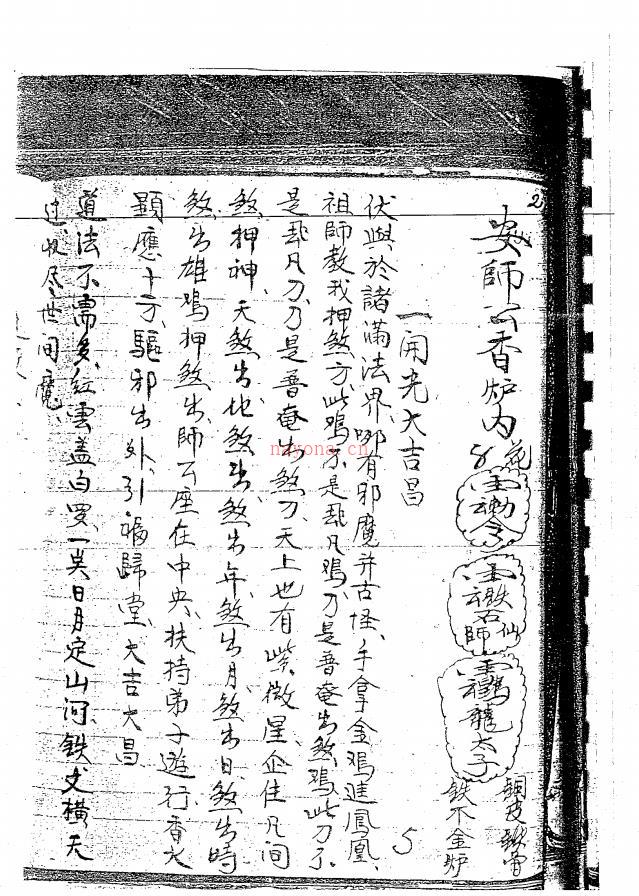 2
安師公香炉内
花
玉敕令
铁石仙師
龍太子
銅皮铁骨
铁不金炉
5
一開光大吉昌
伏與於諸滿法界,哪有邪魔并古怪、手拿金鳮進鳳凰、
祖師教我押煞方、此鳮不是乱凡鳮、乃是普奄出煞鳮、此刀不
是乱凡刀、刀是普奄出煞刀、天上也有紫微星企住凡間
煞押神、天煞出地煞出、煞出年煞出月煞出日、煞出時
煞出雄鳮押煞出、師公座在中央、扶持弟子遊行香火
顯應十方、驅邪出外、引福歸堂、大吉大昌
道法不需多、紅雲盖白一日月定山河、铁丈横天
过、收尽世间魔、
nayona.cn